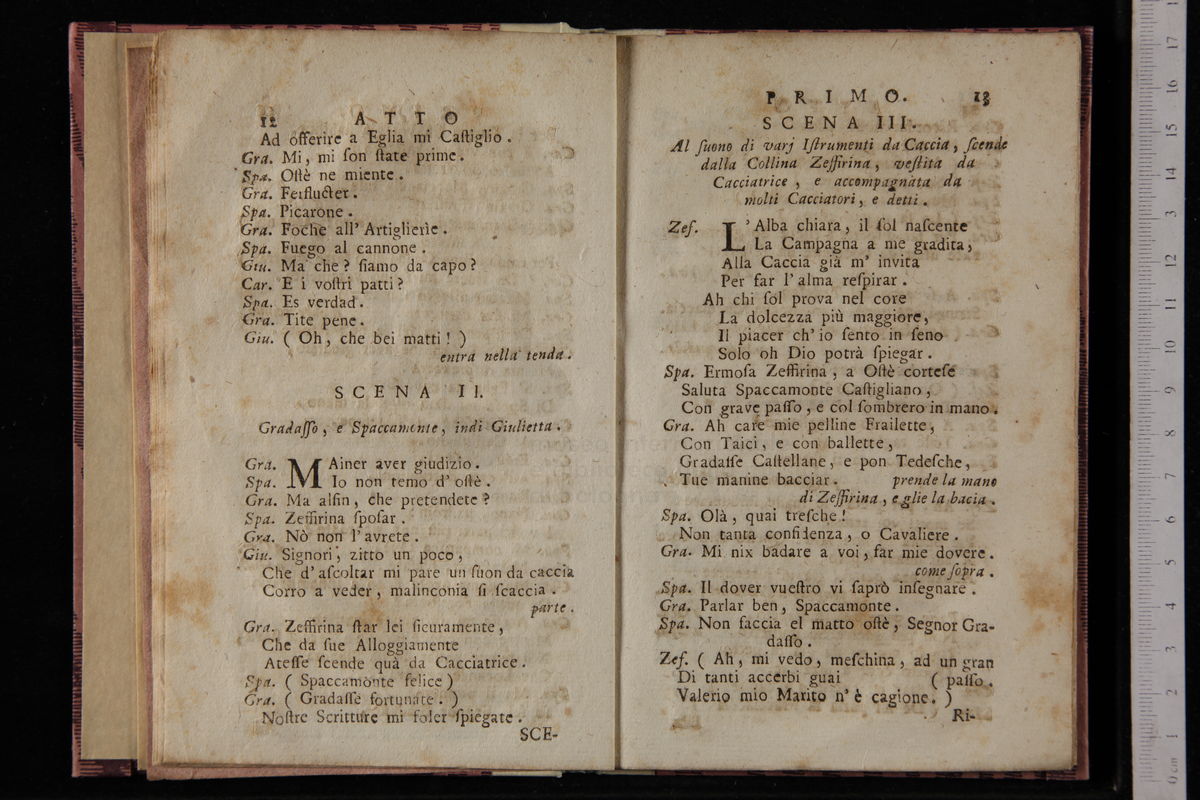 12 ATTO
Ad offerire a Eglia mi Caſtiglio.
Gra. Mi, mi ſon ſtate prime.
Spa. Oſtè ne miente.
Gra. Feifluƈter.
Spa. Picarone.
Gra. Foche all' Artiglierìe.
Spa. Fuego al cannone.
Giu. Ma che? ſiamo da capo?
Car. E i voſtri patti?
Spa. Es verdad.
Gra. Tite pene.
Giu. (Oh, che bei matti!)
entra nella tenda.
SCENA II.
Gradaſſo, e Spaccamonte, indi Giulietta.
Gra. MAiner aver giudizio.
Spa. Io non temo d' oſtè.
Gra. Ma alfin, che pretendete?
Spa. Zeffirina ſpoſar.
Gra. Nò non l' avrete.
Giu. Signori, zitto un poco,
Che d' aſcoltar mi pare un ſuon da caccia
Corro a veder, malinconia ſi ſcaccia.
parte.
Gra. Zeffirina ſtar lei ſicuramente,
Che da ſue Alloggiamente
Ateſſe ſcende quà da Cacciatrice.
Spa. (Spaccamonte felice)
Gra. (Gradaſſe fortunate.)
Noſtre Scritture mi foler ſpiegate.
SCE-
PRIMO. 13
SCENA III.
Al ſuono di varj Iſtrumenti da Caccia, ſcende
dalla Collina Zeffirina, veſtita da
Cacciatrice, e accompagnata da
molti Cacciatori, e detti.
Zef. L'Alba chiara, il ſol naſcente
La Campagna a me gradita,
Alla Caccia già m' invita
Per far l' alma reſpirar.
Ah chi ſol prova nel core
La dolcezza più maggiore,
Il piacer ch' io ſento in ſeno
Solo oh Dio potrà ſpiegar.
Spa. Ermoſa Zeffirina, a Oſtè corteſe
Saluta Spaccamonte Caſtigliano,
Con grave paſſo, e col ſombrero in mano.
Gra. Ah care mie pelline Frailette,
Con Taici, e con ballette,
Gradaſſe Caſtellane, e pon Tedeſche,
Tue manine bacciar. prende la mano
di Zeffirina, e glie la bacia.
Spa. Olà, quai treſche!
Non tanta confidenza, o Cavaliere.
Gra. Mi nix badare a voi, far mie dovere.
come ſopra.
Spa. Il dover vueſtro vi ſaprò inſegnare.
Gra. Parlar ben, Spaccamonte.
Spa. Non faccia el matto oſtè, Segnor Gra-
daſſo.
Zef. (Ah, mi vedo, meſchina, ad un gran
Di tanti accerbi guai (paſſo.
Valerio mio Marito n' è cagione.)
Ri-